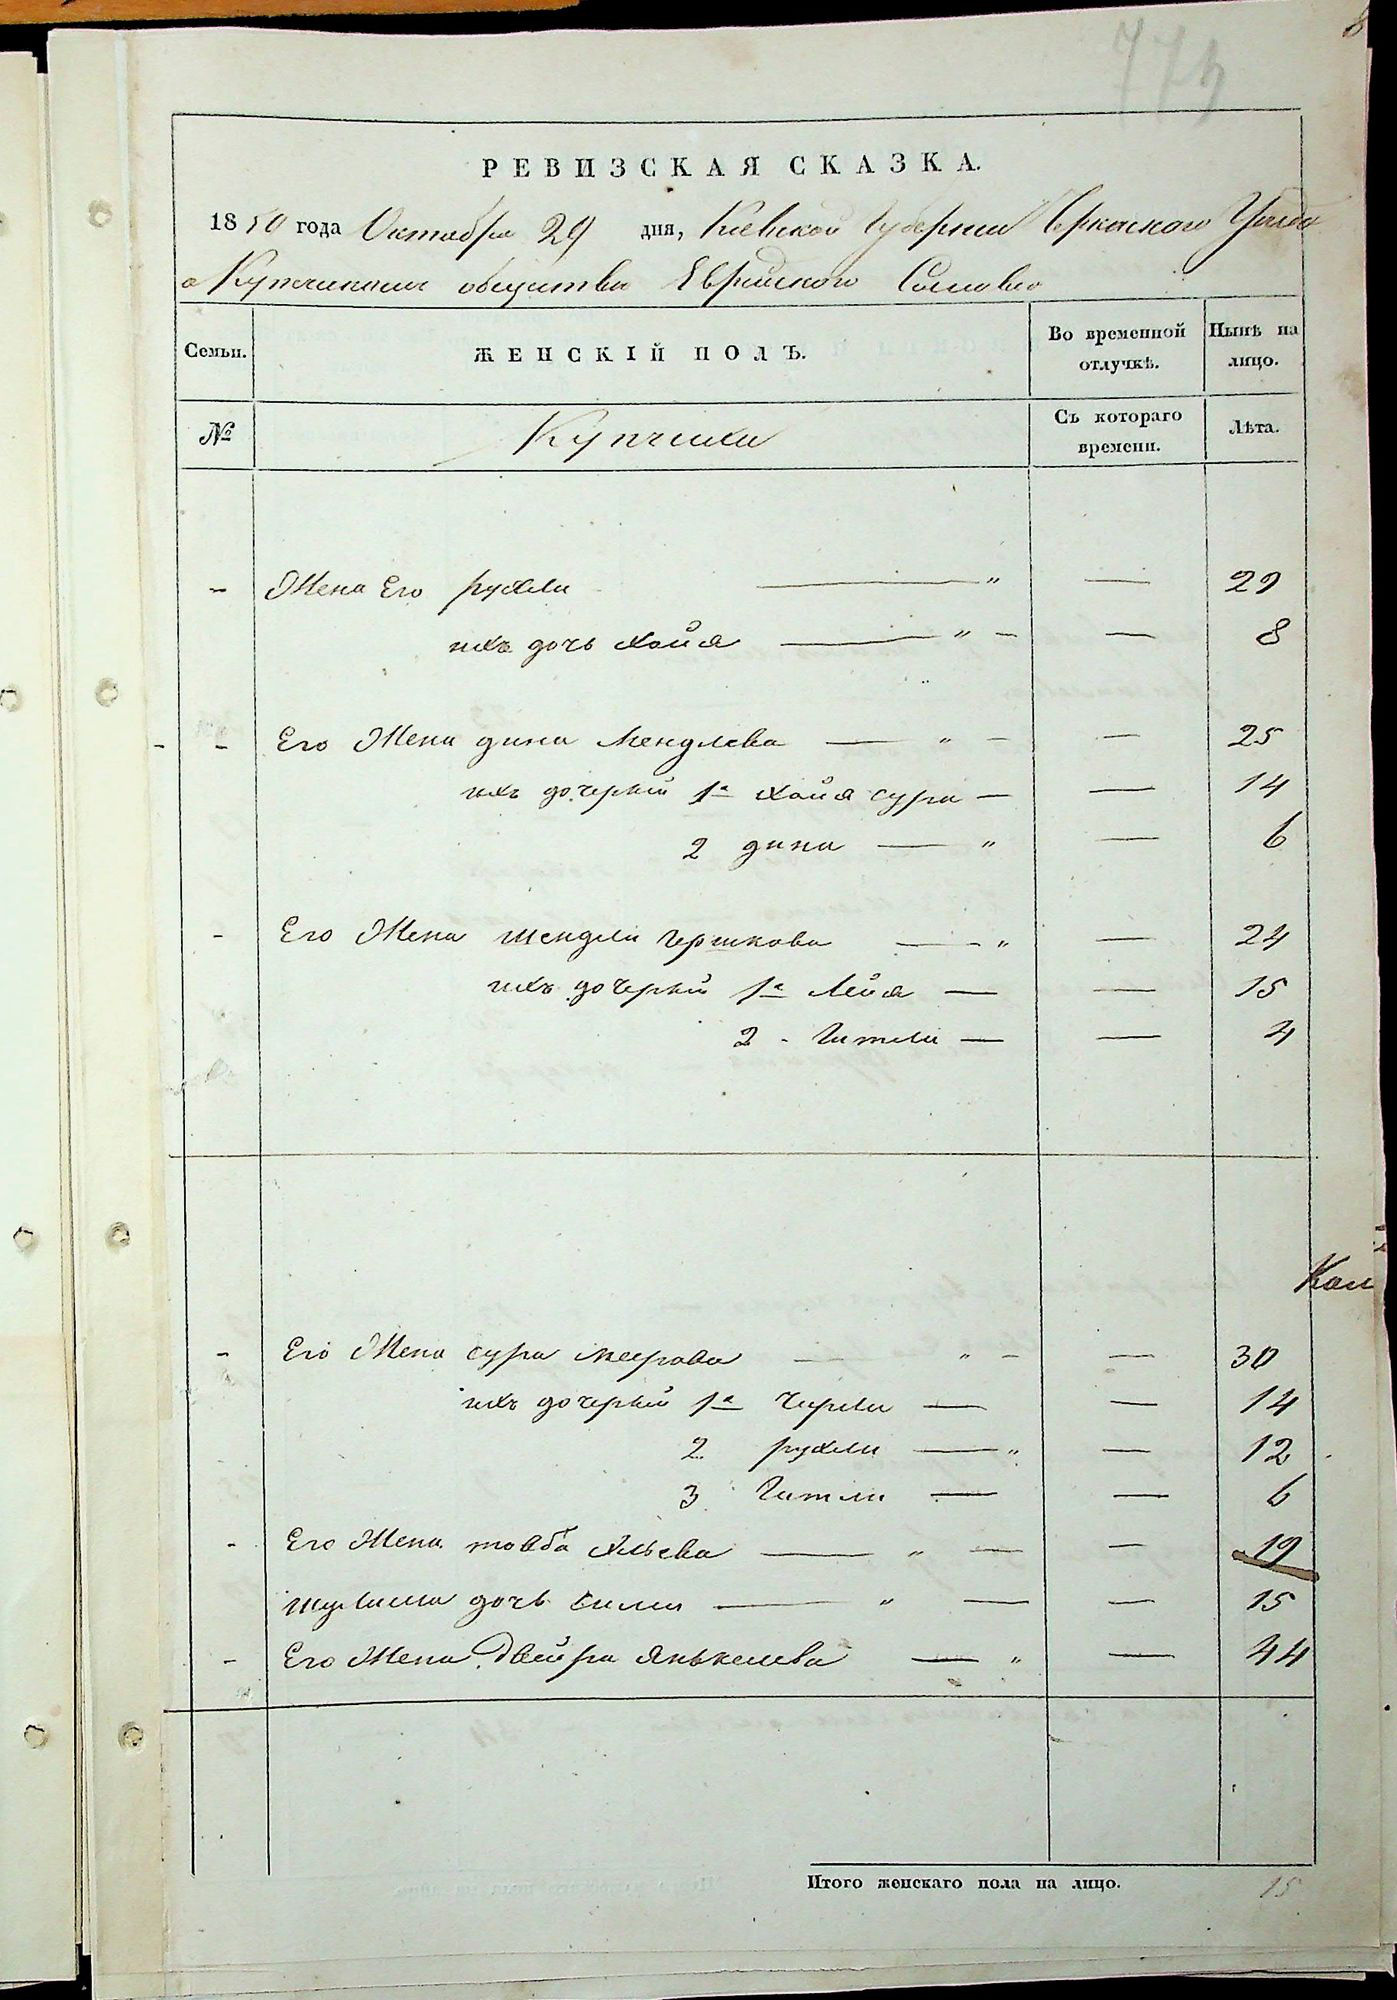 8
774
РЕВИЗСКАЯ СКАЗКА.
1850 года Октября 29 дня, Киевской Губернии Черкаского Уезда
о Купчихахъ общества Еврейского Сословия
Семьи. ЖЕНСКІЙ ПОЛЪ. Во временной отлучкѣ. Нынѣ на лицо.
№ Купчихи Съ котораго времени. Лѣта.
- Жена Его рухля — " — 29
ихъ дочь хайя — " - — 8
- - Его Жена дина Мендлева — " - — 25
ихъ дочерьи 1я хайя сура — — 14
2 дина — " — 6
- Его Жена шендля Гершкова — " — 24
ихъ дочерьи 1я Лейя — — 15
2 - Гитля — — 4
Кал
- Его Жена сура меерова — " - — 30
ихъ дочерьи 1я Черля — — 14
2 рухля — " — 12
3 Гитля — — 6
- Его Жена товба — " — — 19
дочь — " — — 15
- Его Жена Двейра Янькелева — " — 44
Итого женскаго пола на лицо. 15